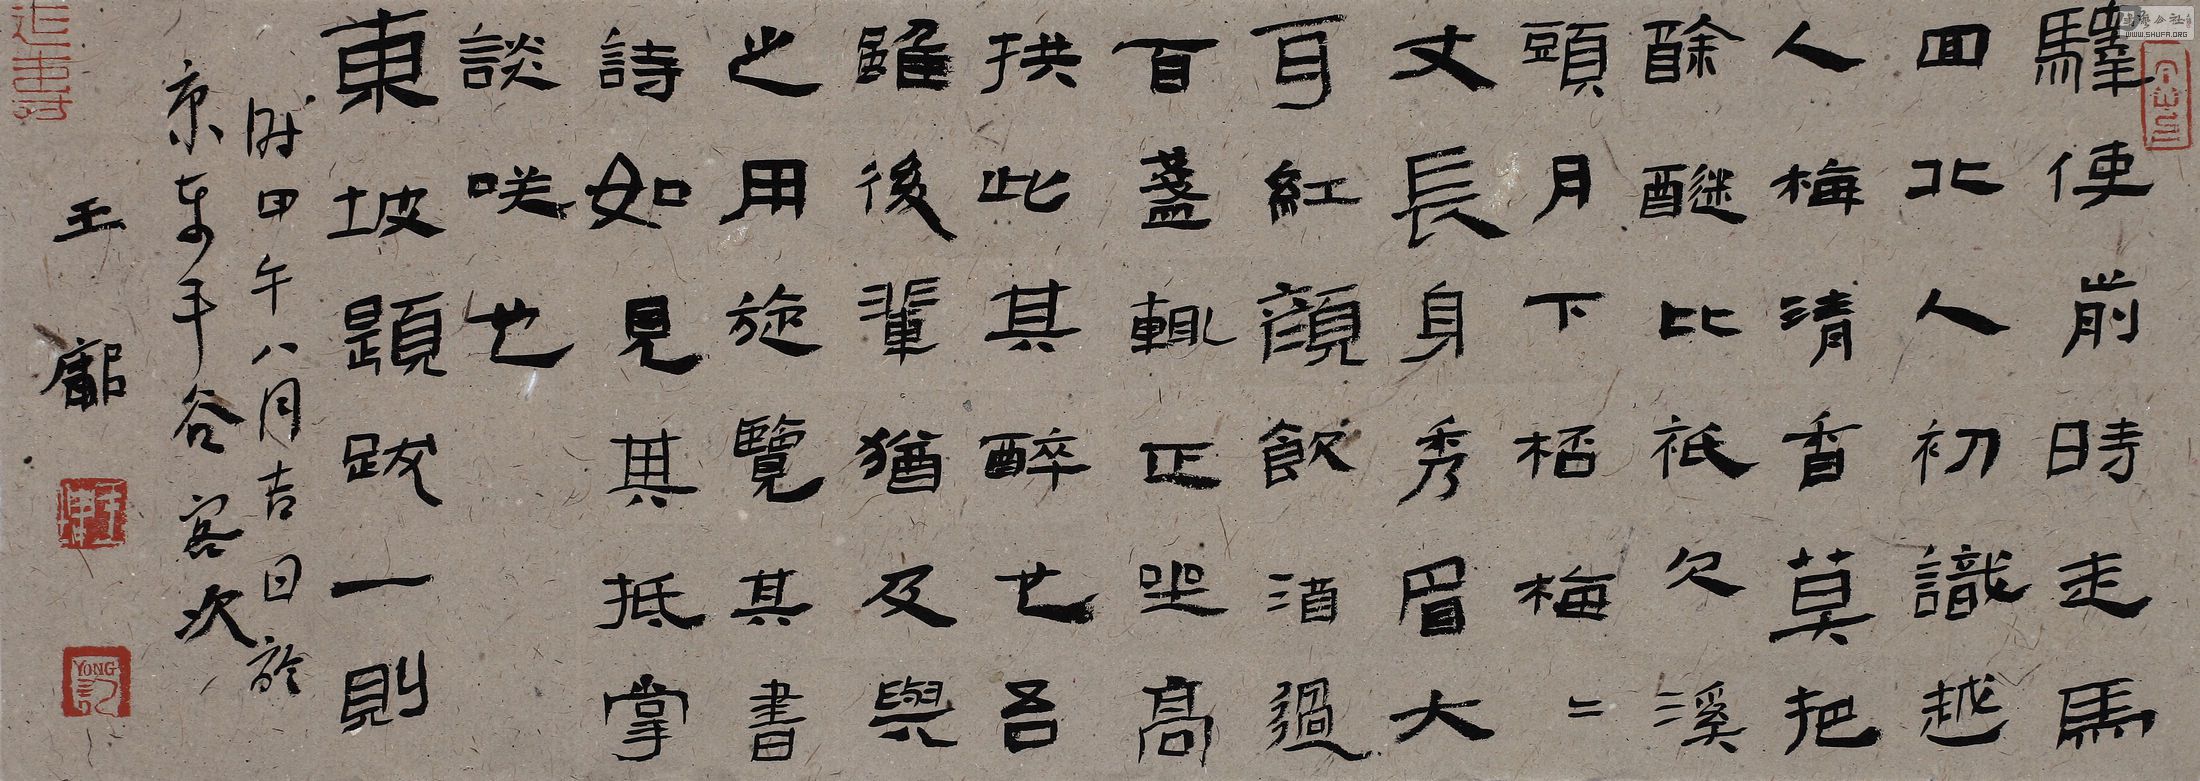 驛使前時走馬
回北人初識越
人梅清香莫把
酴醚比祇欠溪
頭月下桮梅二
丈長身秀眉大
耳紅顏飲酒過
百盞輒正坐高
拱此其醉也吾
雖後輩猶及與
之用旋覽其書
詩如見其抵掌
談咲也
東坡題跋一則
时甲午八月吉日於
京东平谷客次
王
YONG
记
WWW.SHUFA.ORG